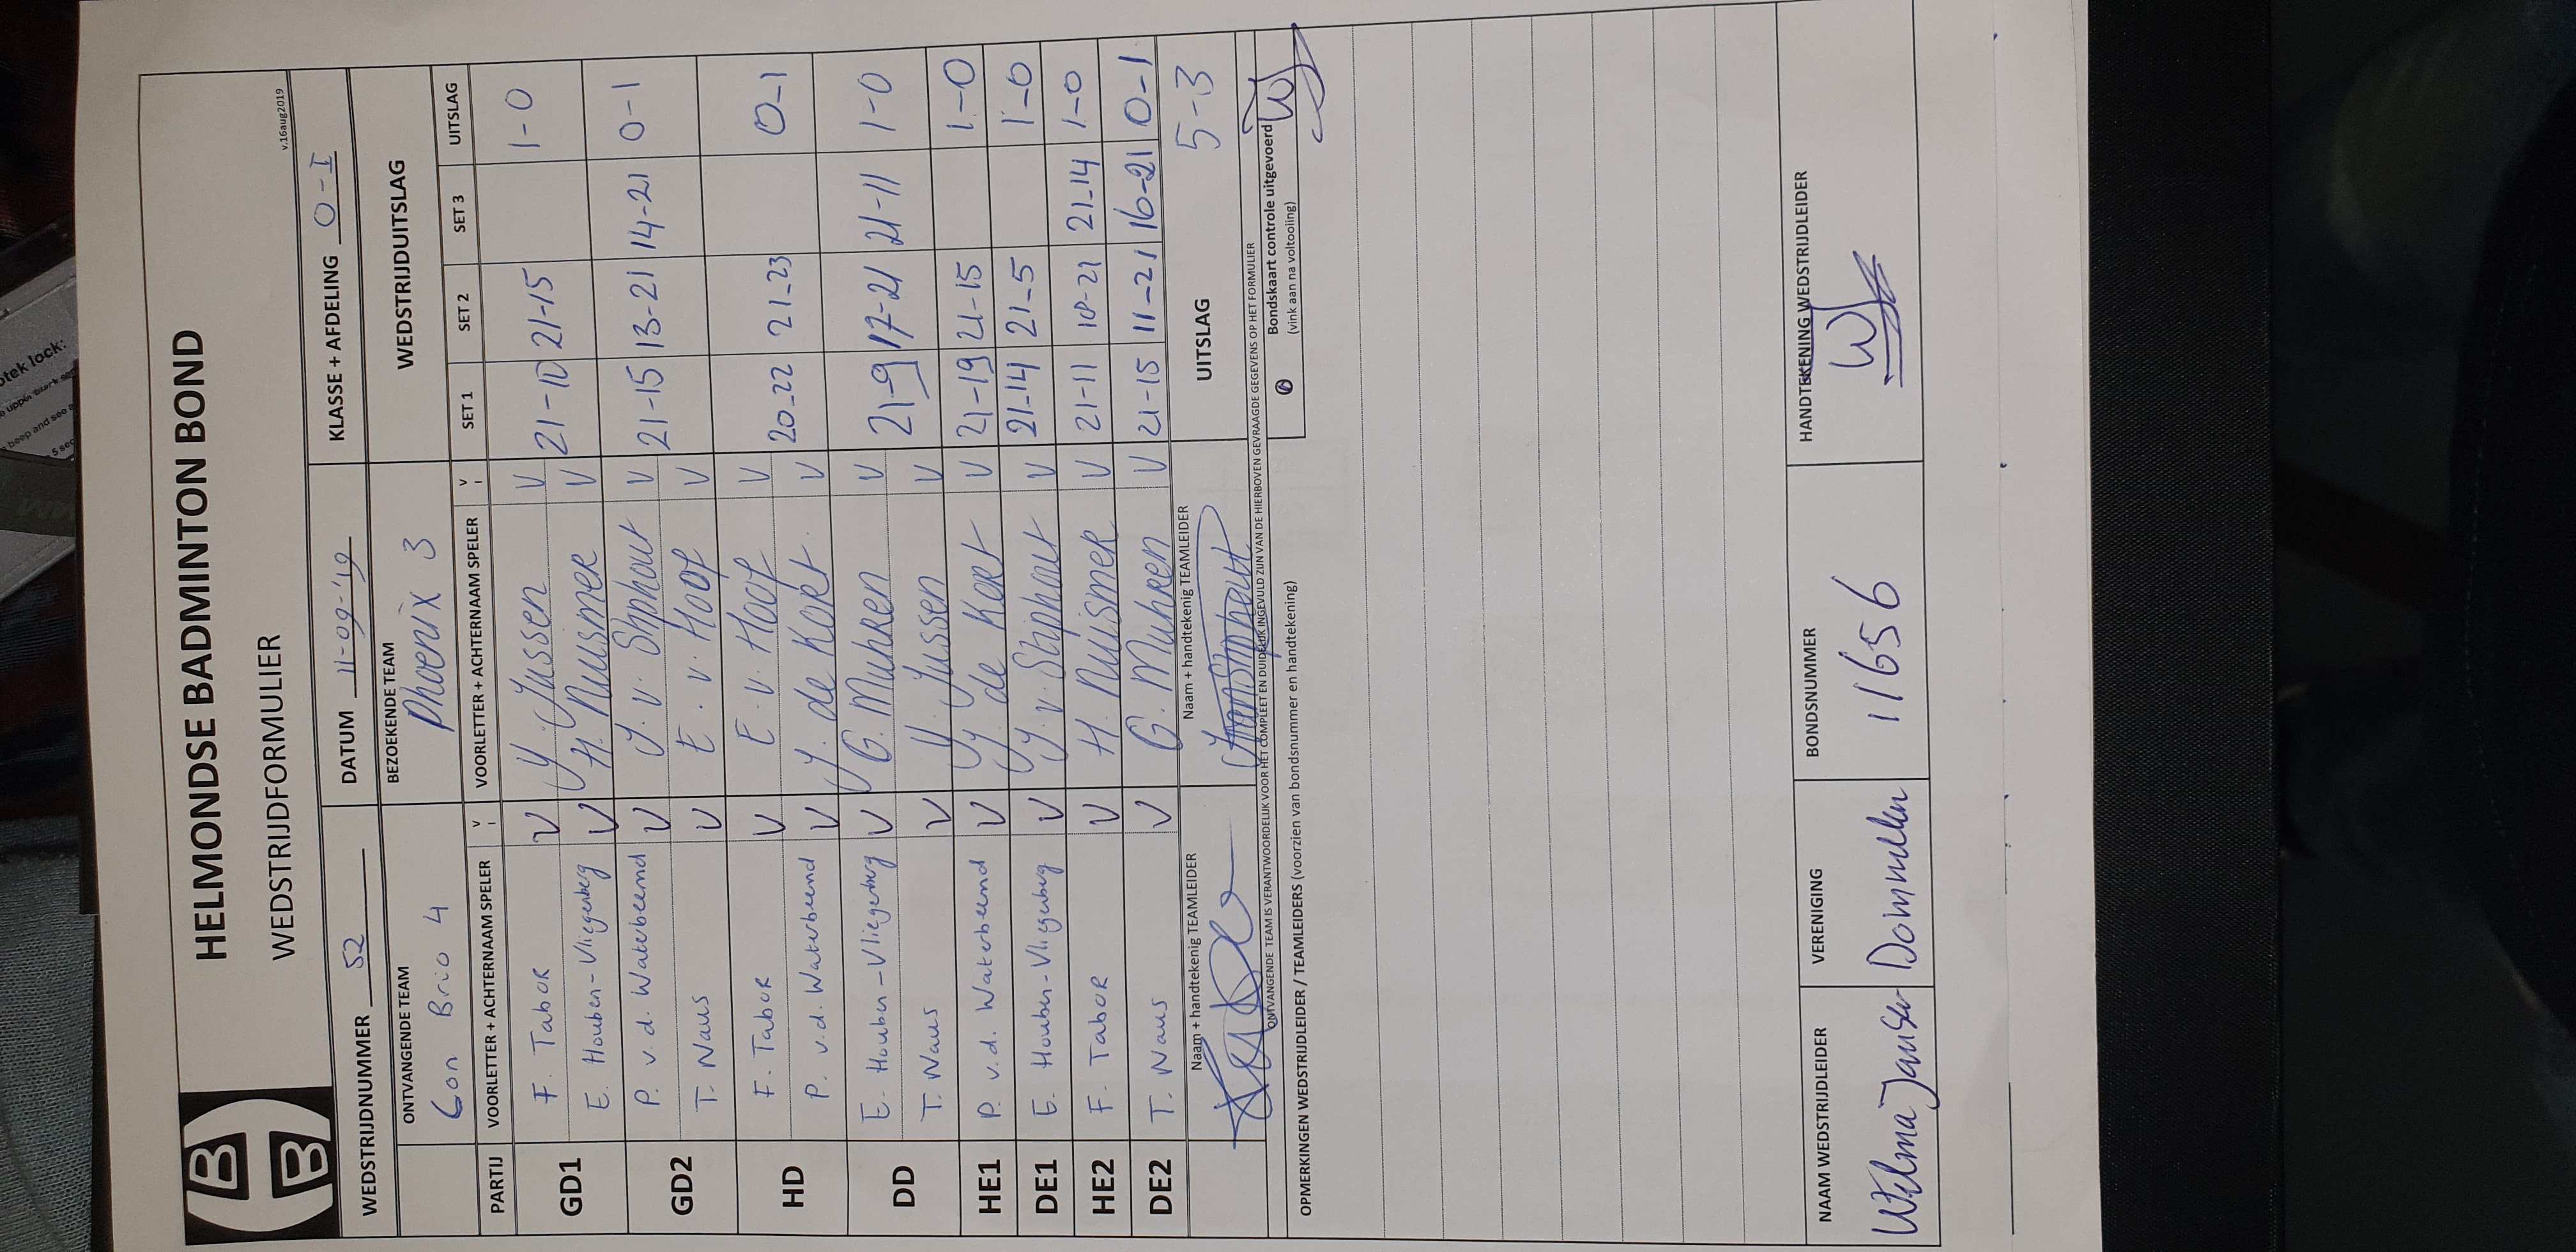 HELMONDSE BADMINTON BOND
WEDSTRIJDFORMULIER
v.16aug2019
WEDSTRIJDNUMMER 52 DATUM 11-09-'19 KLASSE + AFDELING O-I
ONTVANGENDE TEAM BEZOEKENDE TEAM WEDSTRIJDUITSLAG
Con Brio 4 Phoenix 3
PARTIJ VOORLETTER + ACHTERNAAM SPELER V VOORLETTER + ACHTERNAAM SPELER V SET 1 SET 2 SET 3 UITSLAG
GD1 F. Tabor V Y. Jussen V 21-10 21-15 1-0
E. Houben-Vliegenberg V H. Nuismer V
GD2 P. v.d. Waterbeemd V J. v. Stiphout V 21-15 13-21 14-21 0-1
T. Naus V E. v. Hoof V
HD F. Tabor V E. v. Hoof V 20-22 21-23 0-1
P. v.d. Waterbeemd V J. de Kort V
DD E. Houben-Vliegenberg V G. Muhren V 21-9 17-21 21-11 1-0
T. Naus V Y. Jussen V
HE1 P. v.d. Waterbeemd V J. de Kort V 21-19 21-15 1-0
DE1 E. Houben-Vliegenberg V J. v. Stiphout V 21-14 21-5 1-0
HE2 F. Tabor V H. Nuismer V 21-11 18-21 21-14 1-0
DE2 T. Naus V G. Muhren V 21-15 11-21 16-21 0-1
Naam + handtekenig TEAMLEIDER Naam + handtekenig TEAMLEIDER UITSLAG 5-3
ONTVANGENDE TEAM IS VERANTWOORDELIJK VOOR HET COMPLEET EN DUIDELIJK INGEVULD ZIJN VAN DE HIERBOVEN GEVRAAGDE GEGEVENS OP HET FORMULIER
Bondskaart controle uitgevoerd
(vink aan na voltooiing)
OPMERKINGEN WEDSTRIJDLEIDER / TEAMLEIDERS (voorzien van bondsnummer en handtekening)
NAAM WEDSTRIJDLEIDER VERENIGING BONDSNUMMER HANDTEKENING WEDSTRIJDLEIDER
Wilma Jansen Dommelen 11656